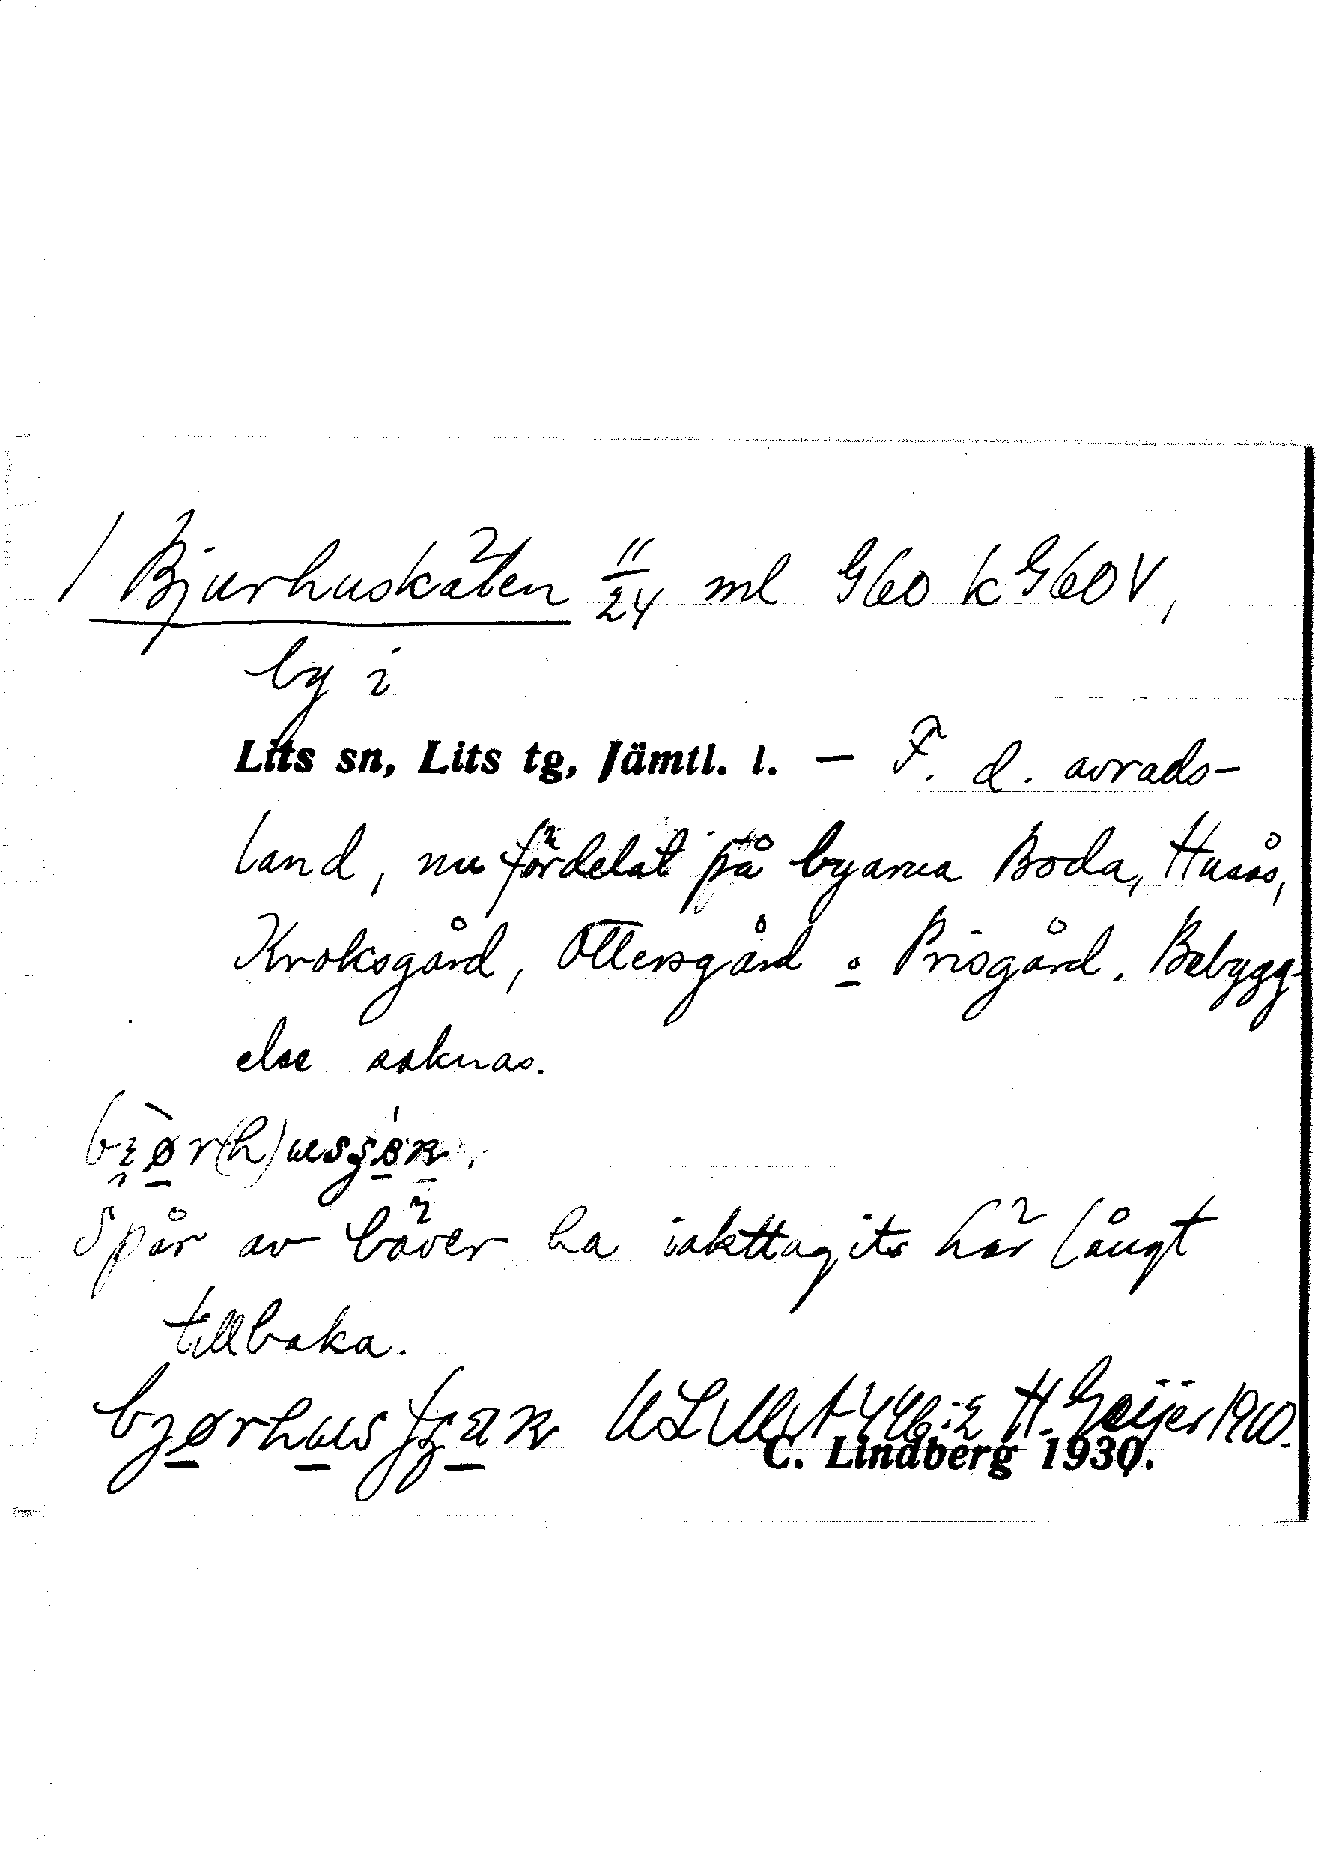 / Bjurhuskäten 11/24 ml G60 k G60V,
by i
Lits sn, Lits tg, Jämtl. l. — F. d. avrads-
land, nu fördelat på byarna Boda, Husås,
Kroksgård, Ottersgård o Prisgård. Bebygg-
else saknas.
Spår av bäver ha iakttagits här långt
tillbaka.
H. Geijer 1910.
C. Lindberg 1930.